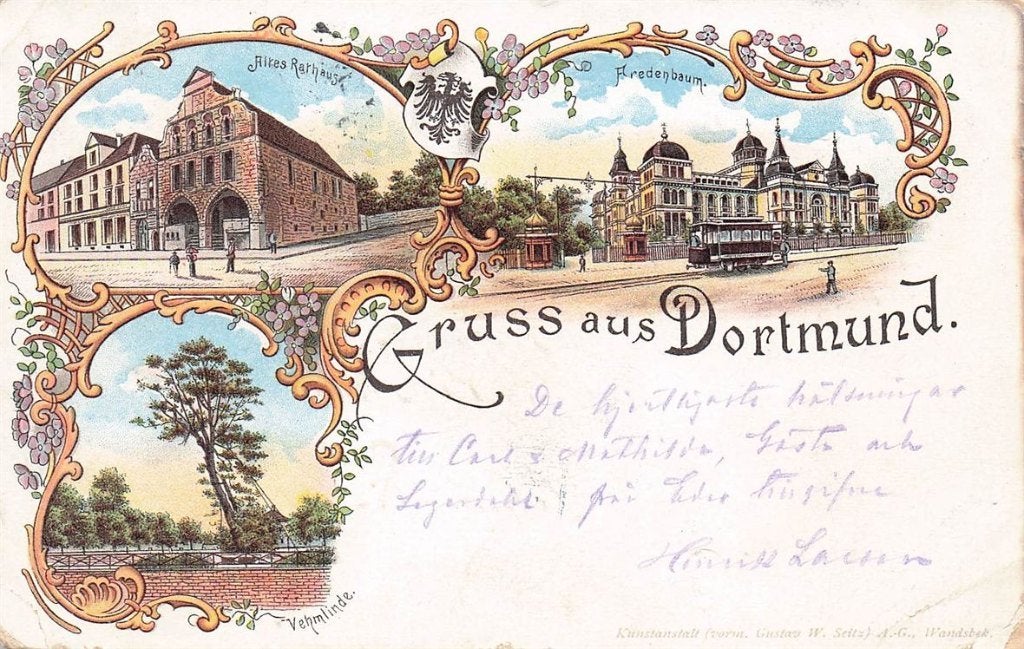 Altes Rathaus.
Fredenbaum.
Gruss aus Dortmund.
De hjertligaste hälsningar
till Carl & Mathilda, Gösta och
från Eder
Larson
Vehmlinde.
Kunstanstalt (vorm. Gustav W. Seitz) A.-G., Wandsbek.